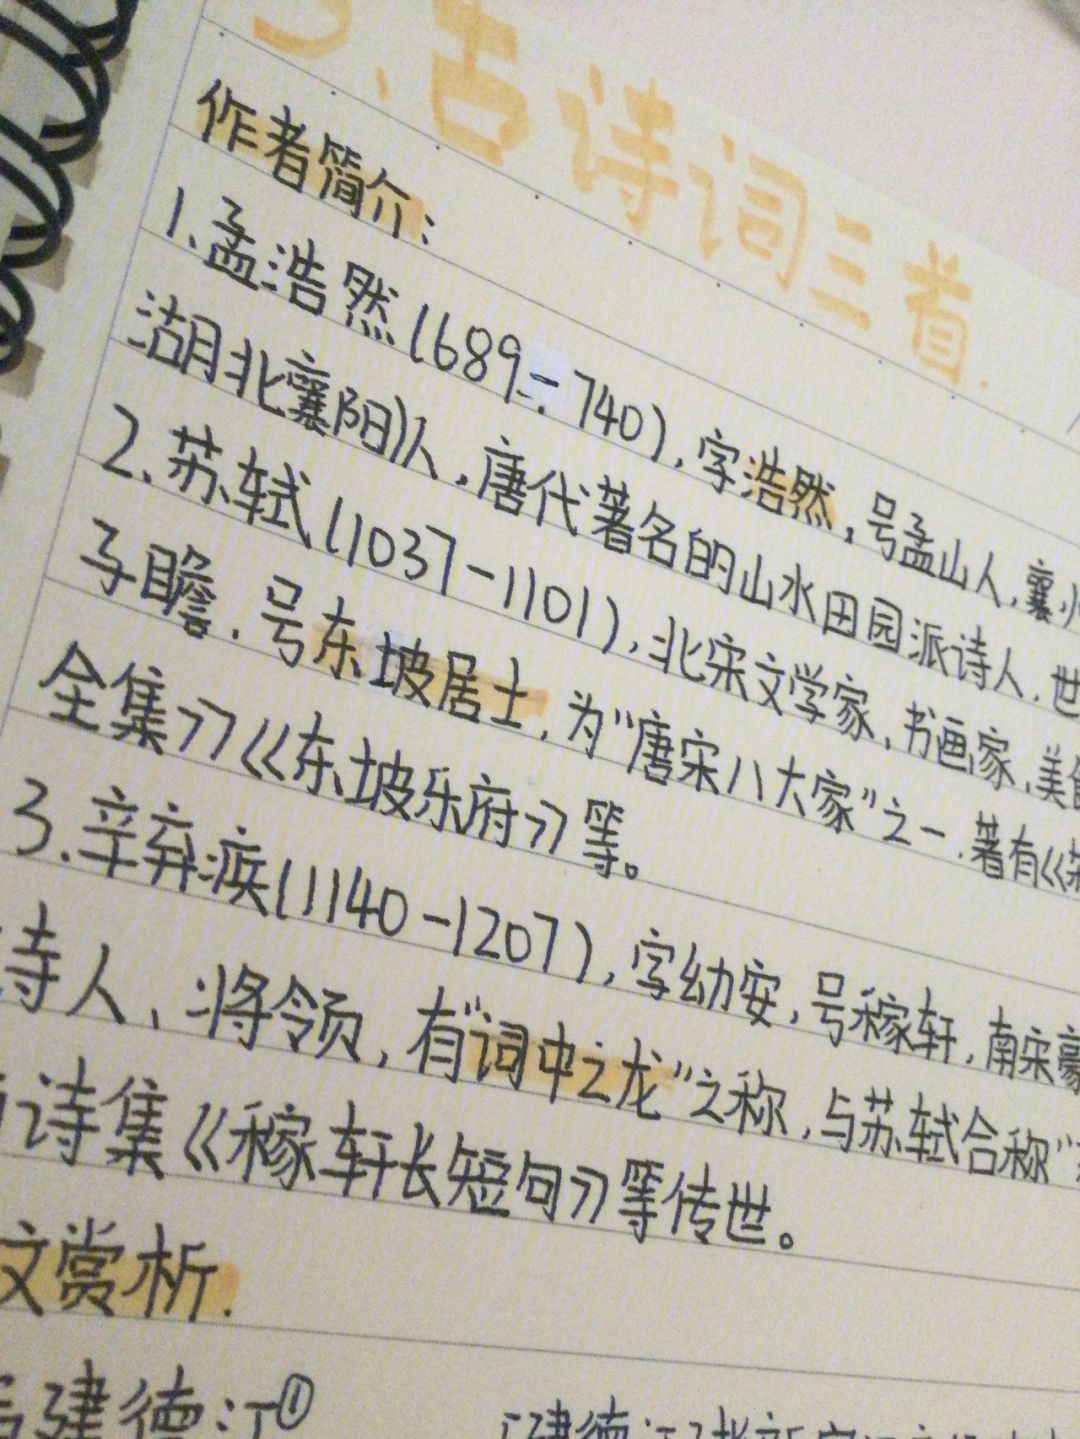 、古诗词三首
作者简介：
1.孟浩然(689-740),字浩然,号孟山人,襄
湖北襄阳)人,唐代著名的山水田园派诗人.世
2.苏轼(1037-1101),北宋文学家,书画家,美
子瞻.号东坡居士,为"唐宋八大家"之一.著有《
全集》《东坡乐府》等。
3.辛弃疾(1140-1207),字幼安,号稼轩,南宋豪
诗人、将领,有"词中之龙"之称,与苏轼合称"
诗集《稼轩长短句》等传世。
文赏析.
建德江①